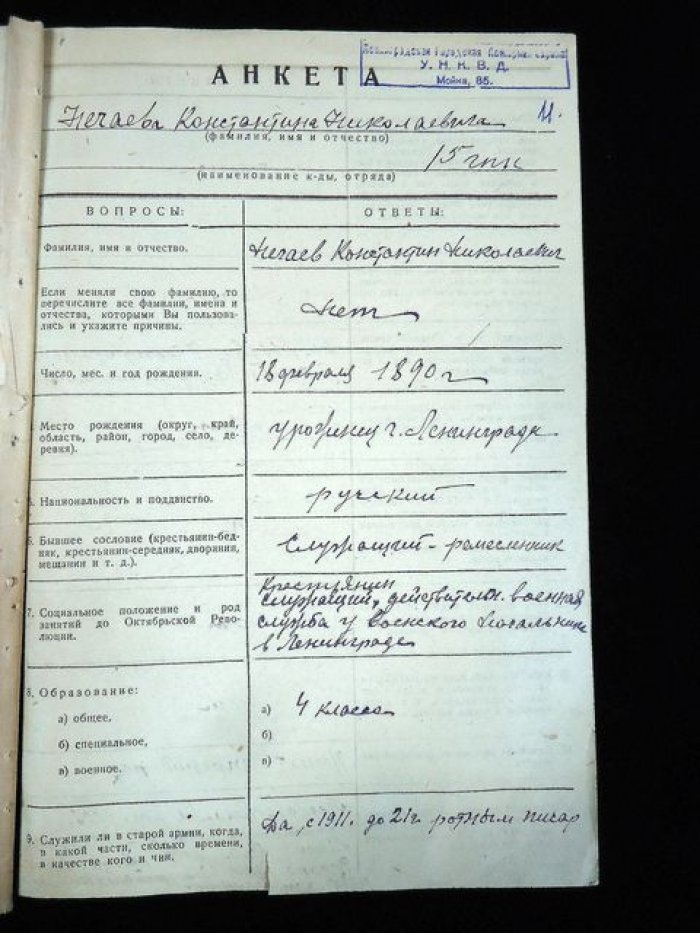 Ленинградская Городская Пожарная Охрана
У. Н. К. В. Д.
Мойка, 85.
АНКЕТА
11.
Нечаева Константина Николаевича
(фамилия, имя и отчество)
15 гпк
(наименование к-ды, отряда)
ВОПРОСЫ: ОТВЕТЫ:
Фамилия, имя и отчество. Нечаев Константин Николаевич
Если меняли свою фамилию, то
перечислите все фамилии, имена и
отчества, которыми Вы пользова-
лись и укажите причины.
нет
Число, мес. и год рождения. 18 февраля 1890 г
Место рождения (округ, край,
область, район, город, село, де-
ревня).
урофинец г. Ленинграда
5. Национальность и подданство. русский
6. Бывшее сословие (крестьянин-бед-
няк, крестьянин-середняк, дворянин,
мещанин и т. д.).
Служащий - ремесленник
7. Социальное положение и род
занятий до Октябрьской Рево-
люции.
крестьянин
служащий, действительн. военная
служба у воинского начальника
в Ленинграде
8. Образование:
а) общее,
б) специальное,
в) военное.
а) 4 класса
б)
в)
9. Служили ли в старой армии, когда,
в какой части, сколько времени,
в качестве кого и чин.
Да, с 1911. до 21 г. ротным писар